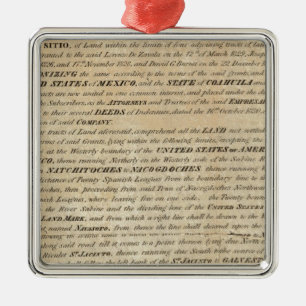 SITIO, of Land within the limits of four adjoining tracts of land
ranted to the said Lorenzo De Zavala on the 12th of March 1829, Josep
1826, and 17th November 1826, and David G. Burnet on the 22 December
NIZING the same according to the terms of the said grants, and
D STATES of MEXICO, and the STATE of COAHUILA and
acts are now united in one common interest, and placed under the
he Subscribers, as the Attorneys and Trustees of the said EMPRESA
to their several DEEDS of Indenture, dated the 16th October 1830.
n of said COMPANY.
r tracts of Land aforesaid, comprehend all the LAND not
erms of said Grants, lying within the following limits, excepting the
at the Westerly boundary of the UNITED STATES of AMER
CO, thence running Northerly on the Westerly side of the Sabine
NATCHITOCHES to NICOGDOCHES thence running
tance of Twenty Spanish Leagues from the boundary line
des, then proceeding from said Town of Nacogdoches Northwest
ish Leagues, where leaving five on one side, the Twenty
the River Sabine and the dividing line of the UNITED STATES
LAND MARK, and from which a right line shall be drawn to the
named Navasoto, from thence the line shall descend upon
ing said road till it comes to a point thereon (ing due North
ng San Jacinto to its source, thence running due South to the source
it falls into the left bank of the St. JACINTO & GALVEST